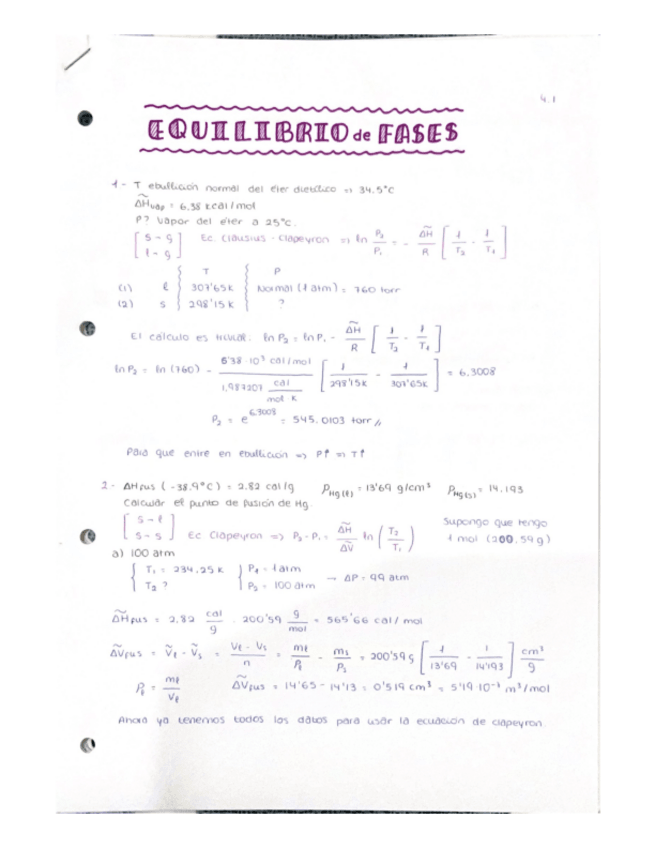 4.1
EQUILIBRIO de FASES
1- T ebullición normal del éter dietílico => 34.5°C
ΔH̃vap = 6.38 kcal/mol
P? Vapor del éter a 25°C.
[s-g l-g] Ec. Clausius-Clapeyron => ln P2/P1 = - ΔH̃/R [1/T2 - 1/T1]
T P
(1) l 307'65K Normal (1 atm) = 760 torr
(2) s 298'15K ?
El cálculo es trivial: ln P2 = ln P1 - ΔH̃/R [1/T2 - 1/T1]
ln P2 = ln (760) - 6'38·10³ cal/mol / 1,987207 cal/mol K [1/298'15K - 1/307'65K] = 6.3008
P2 = e^6.3008 = 545.0103 torr //
Para que entre en ebullición => P↑ => T↑
2- ΔHfus (-38.9°C) = 2.82 cal/g ρHg(l) = 13'69 g/cm³ ρHg(s) = 14.193
Calcular el punto de fusión de Hg.
[s-l s-s] Ec Clapeyron => P2-P1 = ΔH̃/ΔṼ ln (T2/T1)
Supongo que tengo
1 mol (200.59 g)
a) 100 atm
{T1 = 234.25K {P1 = 1 atm
T2? P2 = 100 atm → ΔP = 99 atm
ΔH̃fus = 2,82 cal/g · 200'59 g/mol = 565'66 cal/mol
ΔṼfus = Ṽl - Ṽs = Vl - Vs / n = ml/ρl - ms/ρs = 200'59 g [1/13'69 - 1/14'193] cm³/g
ρl = ml/Vl ΔṼfus = 14'65 - 14'13 = 0'519 cm³ = 5'19·10⁻⁷ m³/mol
Ahora ya tenemos todos los datos para usar la ecuación de clapeyron.